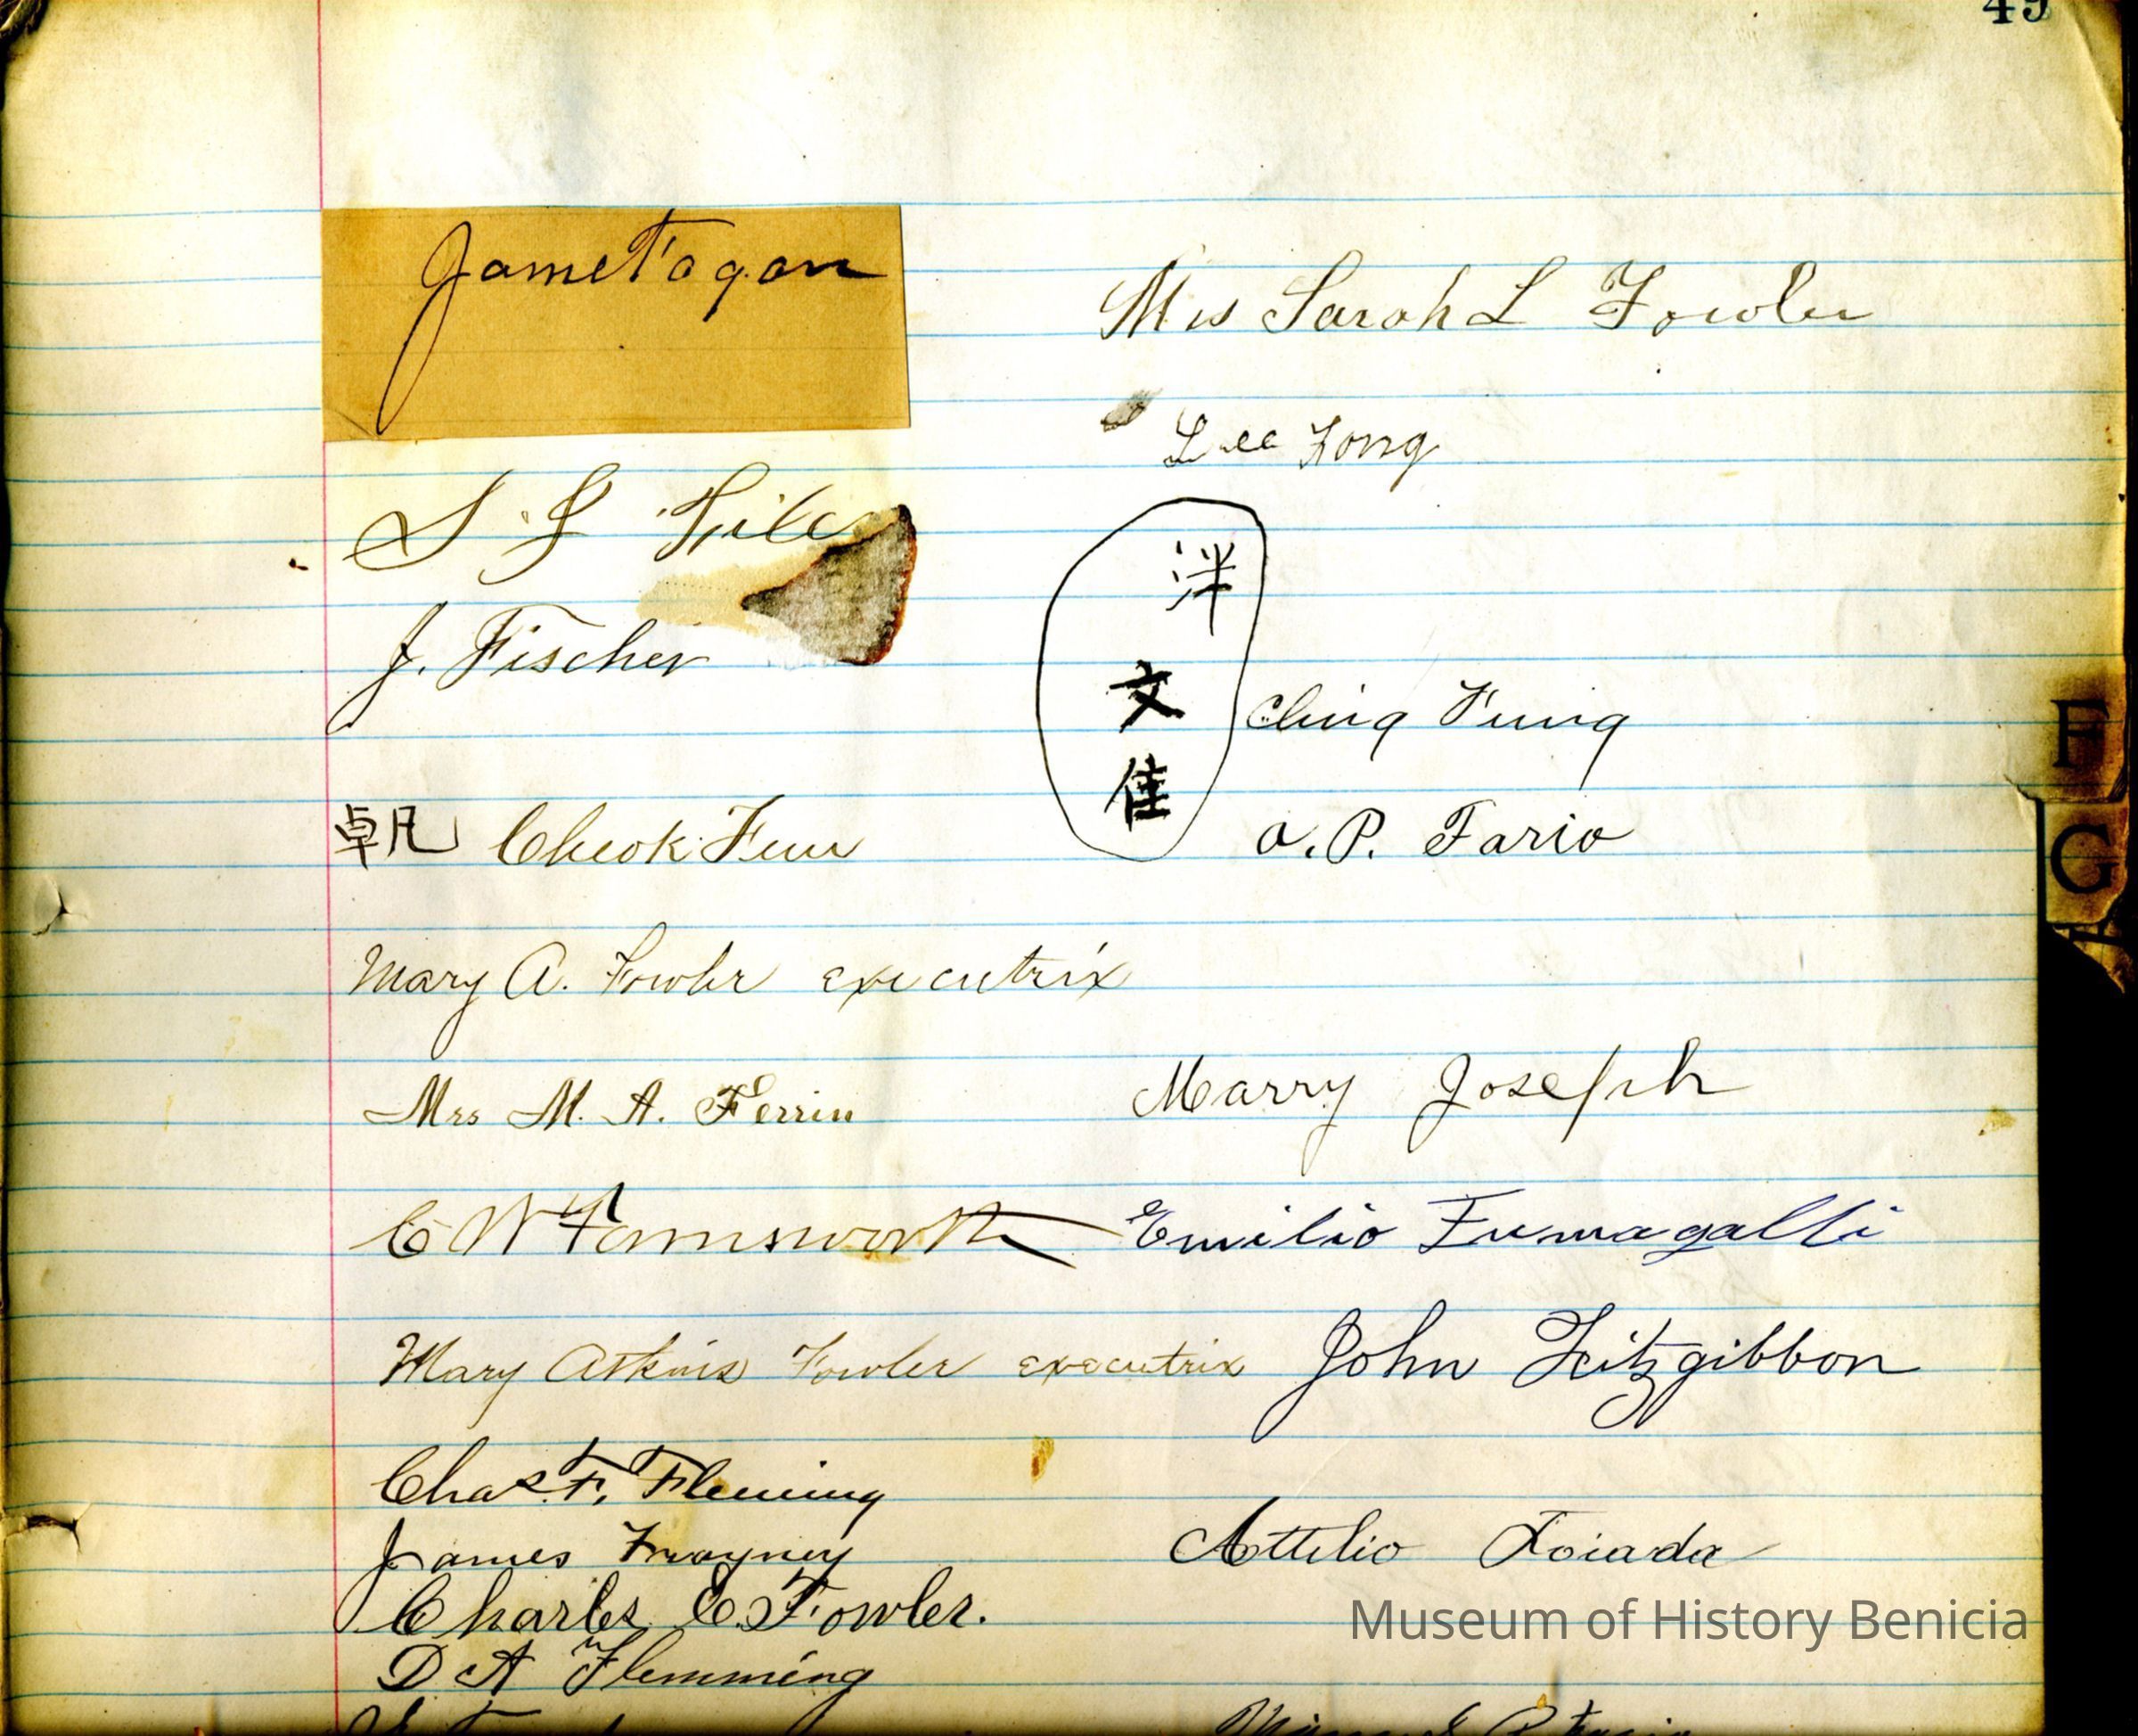 49
Jame Fagan
Mrs Sarah L Fowler
Lee Fong
S. G.
J. Fischer
泮
文
佳
Ching Fung
卓凡 Cheok Fun
A. P. Fario
Mary A. Fowler executrix
Mrs M. A. Ferrin
Marry Joseph
C W Farnsworth
Emilio Fumagalli
Mary Atkins Fowler executrix
John Fitzgibbon
Chas. F. Fleming
James Frayney
Attilio Foiada
Charles C. Fowler.
D A Flemming
F
G
Museum of History Benicia